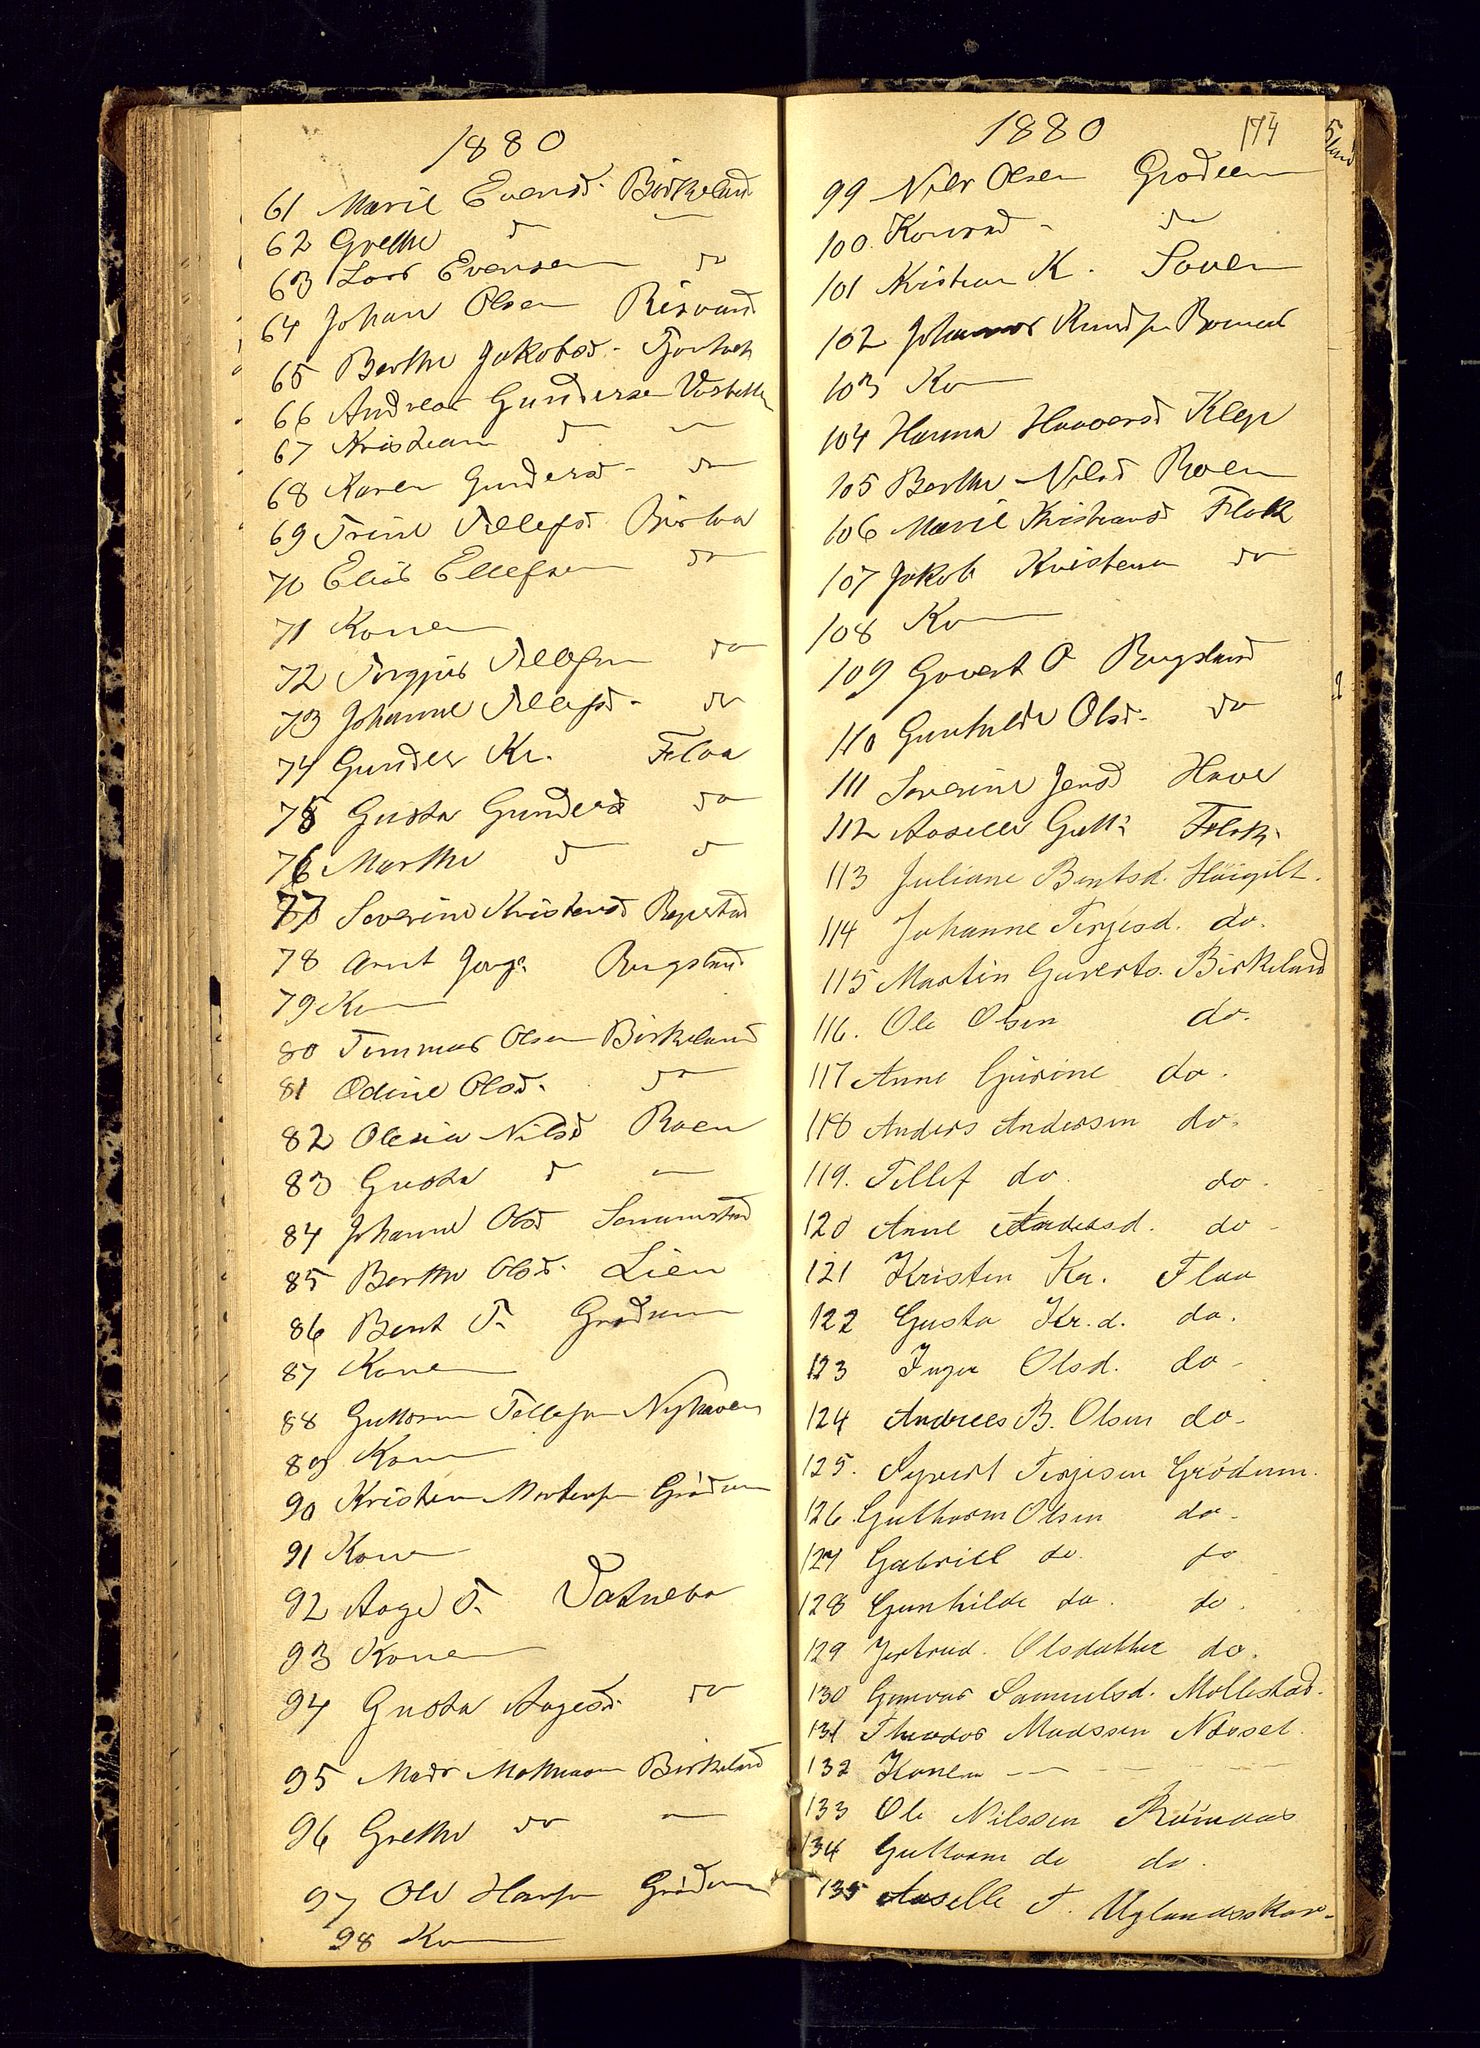 1880
61 Marie Evensd. Birkeland
62 Grethe d —
63 Lars Evensen do
64 Johan Olsen Risvand
65 Berthe Jakobsd.
66 Andreas Gundersen
67 Kristian d —
68 Karen Gundersd. do
69 Trine Tellefsd.
70 Elias Ellefsen do
71 Konen
72 Torgjus Tellefsen do
73 Johanne Tellefsd. do
74 Gunder Kr. Flaa
75 Gusta Gundersd do
76 Marthe d d
77 Severine Kristensd
78 Arnt Rugsland
79 Kn
80 Tommas Olsen Birkeland
81 Odine Olsd. do
82 Olesia Nilsd Roen
83 Gusta d —
84 Johanne Olsd
85 Berthe Olsd. Lien
86 Bent T. Grødum
87 Konen
88 Guttorm Tellefsen Nyhaven
89 Konen
90 Kristen Mortensen Grødum
91 Konen
92 Aage T. Vatnebo
93 Konen
94 Gusta Aagesd. do
95 Mads Birkeland
96 Grethe do —
97 Ole Hansen Grødum
98 Kn
1880 174
99 Nils Olsen Grodeen
100. Konrad - do
101 Kristian K.
102 Johannes Knudsen
103 Ko
104 Hanna Haaversd Klep
105 Berthe Nilsd Roen
106 Marie Kristiansd Flak
107 Jakob Kristensen do
108 Ko
109 Govert O Rugsland
110 Gunhilde Olsd. do
111 Severine Jensd Have
112 Aaselle Gutt. Flak
113 Juliane Bentsd. Høigilt.
114 Johanne Terjesd. do.
115 Martin Guverts. Birkeland
116. Ole Olsen do.
117 Anne Gurine do.
118 Anders Andersen do.
119. Tellef do. do.
120 Anne Andersd. do -
121 Kristen Kr. Flaa
122 Gusta Kr.d. do.
123 Inger Olsd. do -
124 Andreas B. Olsen do -
125. Syvert Terjesen Grödum.
126. Guthorm Olsen do -
127 Gabriel do. do
128 Gunhilde do. do.
129 Jertrud. Olsdatter do.
130 Gunvor Samuelsd. Mollestad.
131 Theodor Madssen Næset.
132 Konen — — -
133 Ole Nilssen
134 Guttorm do do.
135 Aaselle T. Uglandsskar-